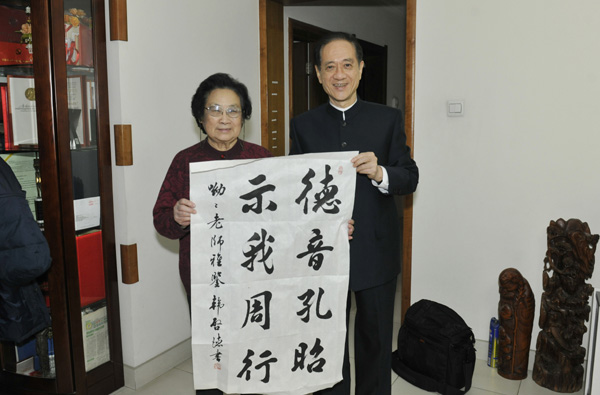 德音孔昭
示我周行
呦々老师雅鉴 韩启德书